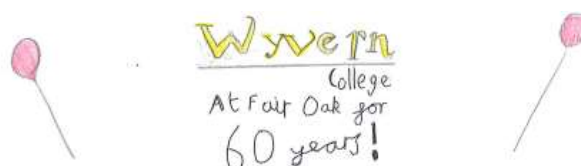 Wyvern
College
At Fair Oak for
60 years!